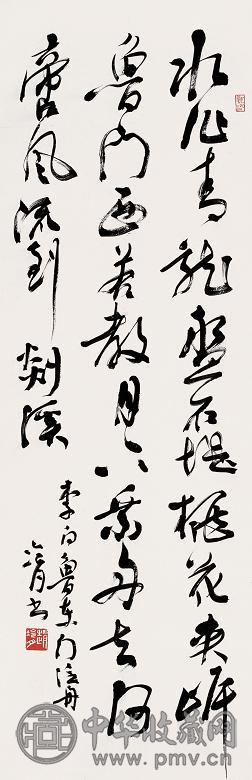 水作青龍盤石堤桃花夾岸
魯門西若教月下乘舟去何
啻風流到剡溪
李白魯東門泛舟
冷月书
中华收藏网
www.pmv.cn